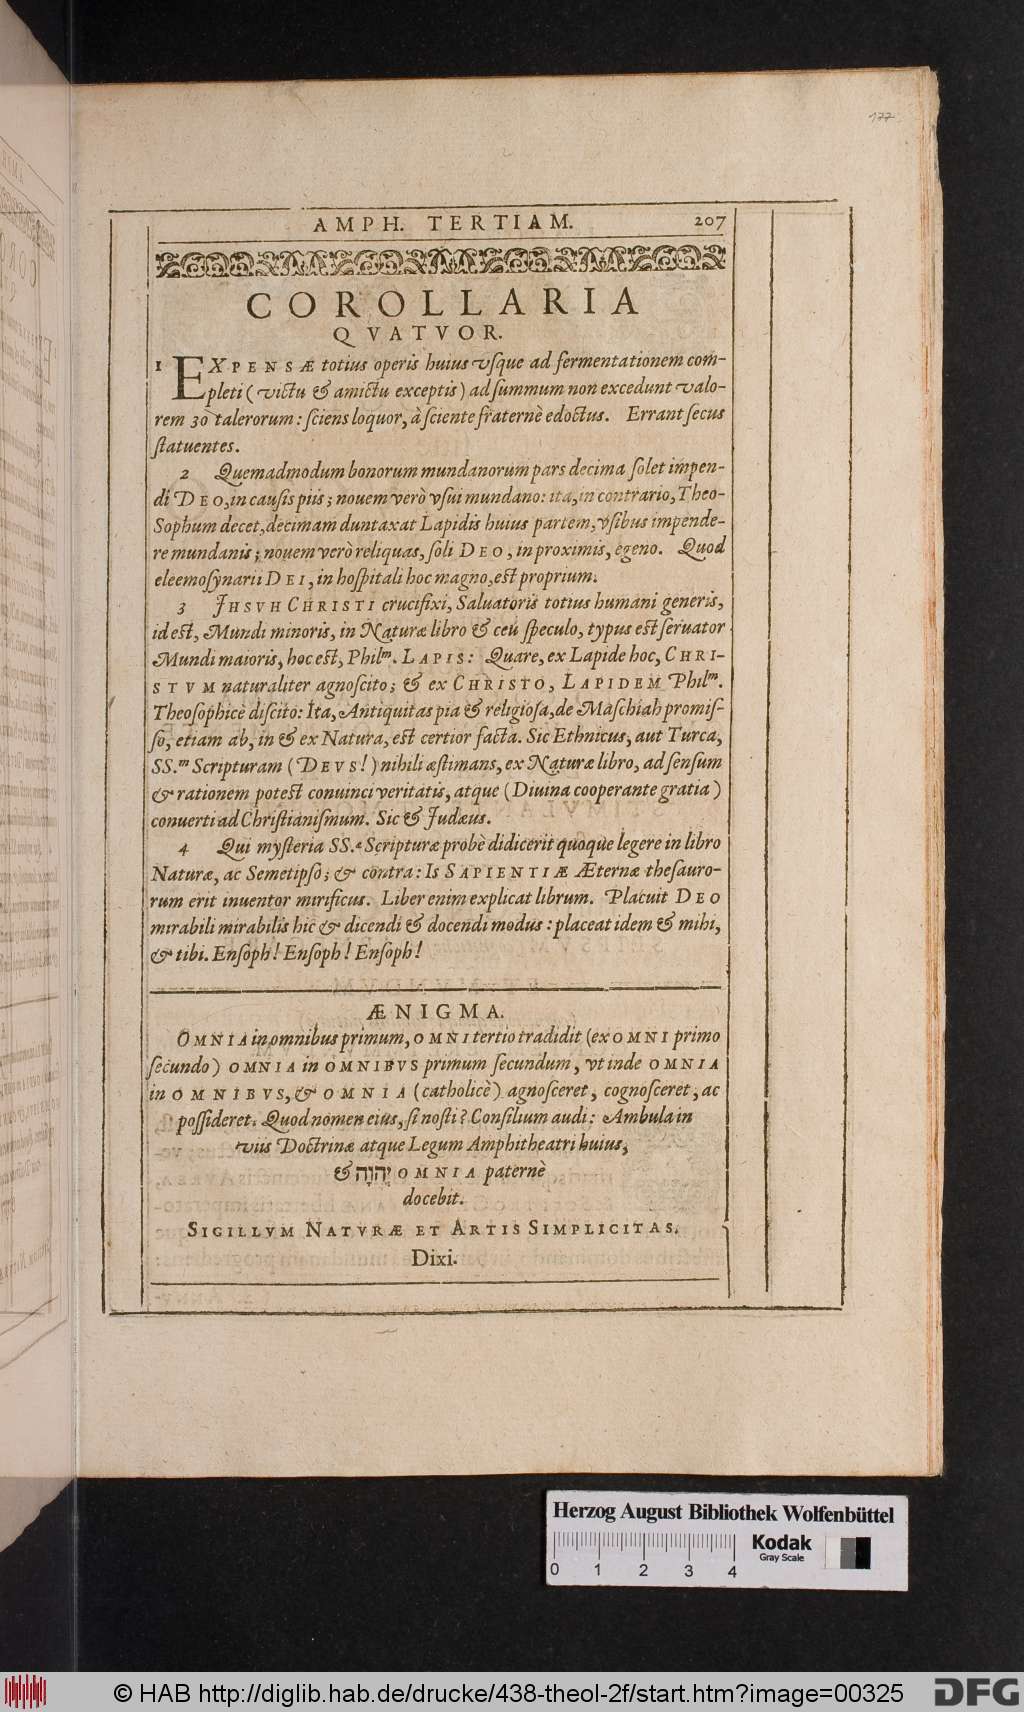 177
AMPH. TERTIAM. 207
COROLLARIA
QVATVOR.
1 EXPENSÆ totius operis huius vſque ad fermentationem com-
pleti (victu & amictu exceptis) ad ſummum non excedunt valo-
rem 30 talerorum: ſciens loquor, à ſciente fraternè edoctus. Errant ſecus
ſtatuentes.
2 Quemadmodum bonorum mundanorum pars decima ſolet impen-
di DEO, in cauſis piis; nouem verò vſui mundano: ita, in contrario, Theo-
Sophum decet, decimam duntaxat Lapidis huius partem, vſibus impende-
re mundanis; nouem verò reliquas, ſoli DEO, in proximis, egeno. Quod
eleemoſynarii DEI, in hoſpitali hoc magno, eſt proprium.
3 JHSVH CHRISTI crucifixi, Saluatoris totius humani generis,
id eſt, Mundi minoris, in Naturæ libro & ceu ſpeculo, typus eſt ſeruator
Mundi maioris, hoc eſt, Philᵐ. LAPIS: Quare, ex Lapide hoc, CHRI-
STVM naturaliter agnoſcito; & ex CHRISTO, LAPIDEM Philᵐ.
Theoſophicè diſcito: Ita, Antiquitas pia & religioſa, de Maſchiah promiſ-
ſo, etiam ab, in & ex Natura, eſt certior facta. Sic Ethnicus, aut Turca,
SS.ᵐ Scripturam (DEVS!) nihili æſtimans, ex Naturæ libro, ad ſenſum
& rationem poteſt conuinci veritatis, atque (Diuina cooperante gratia)
conuerti ad Chriſtianiſmum. Sic & Judæus.
4 Qui myſteria SS.ᵉ Scripturæ probè didicerit quoque legere in libro
Naturæ, ac Semetipſo; & contra: Is SAPIENTIÆ Æternæ theſauro-
rum erit inuentor mirificus. Liber enim explicat librum. Placuit DEO
mirabili mirabilis hic & dicendi & docendi modus: placeat idem & mihi,
& tibi. Enſoph! Enſoph! Enſoph!
ÆNIGMA.
OMNIA in omnibus primum, OMNI tertio tradidit (ex OMNI primo
ſecundo) OMNIA in OMNIBVS primum ſecundum, vt inde OMNIA
in OMNIBVS, & OMNIA (catholicè) agnoſceret, cognoſceret, ac
poſſideret. Quod nomen eius, ſi noſti? Conſilium audi: Ambula in
viis Doctrinæ atque Legum Amphitheatri huius,
& יְהוָֹה OMNIA paternè
docebit.
SIGILLVM NATVRÆ ET ARTIS SIMPLICITAS.
Dixi.
Herzog August Bibliothek Wolfenbüttel
Kodak
Gray Scale
0 1 2 3 4
© HAB http://diglib.hab.de/drucke/438-theol-2f/start.htm?image=00325
DFG